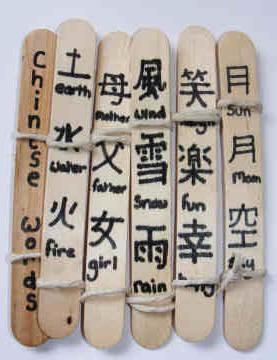 Chinese
words
土
earth
水
water
火
fire
母
mother
父
father
女
girl
風
wind
雪
Snow
雨
rain
笑
楽
fun
幸
日
Sun
月
moon
空